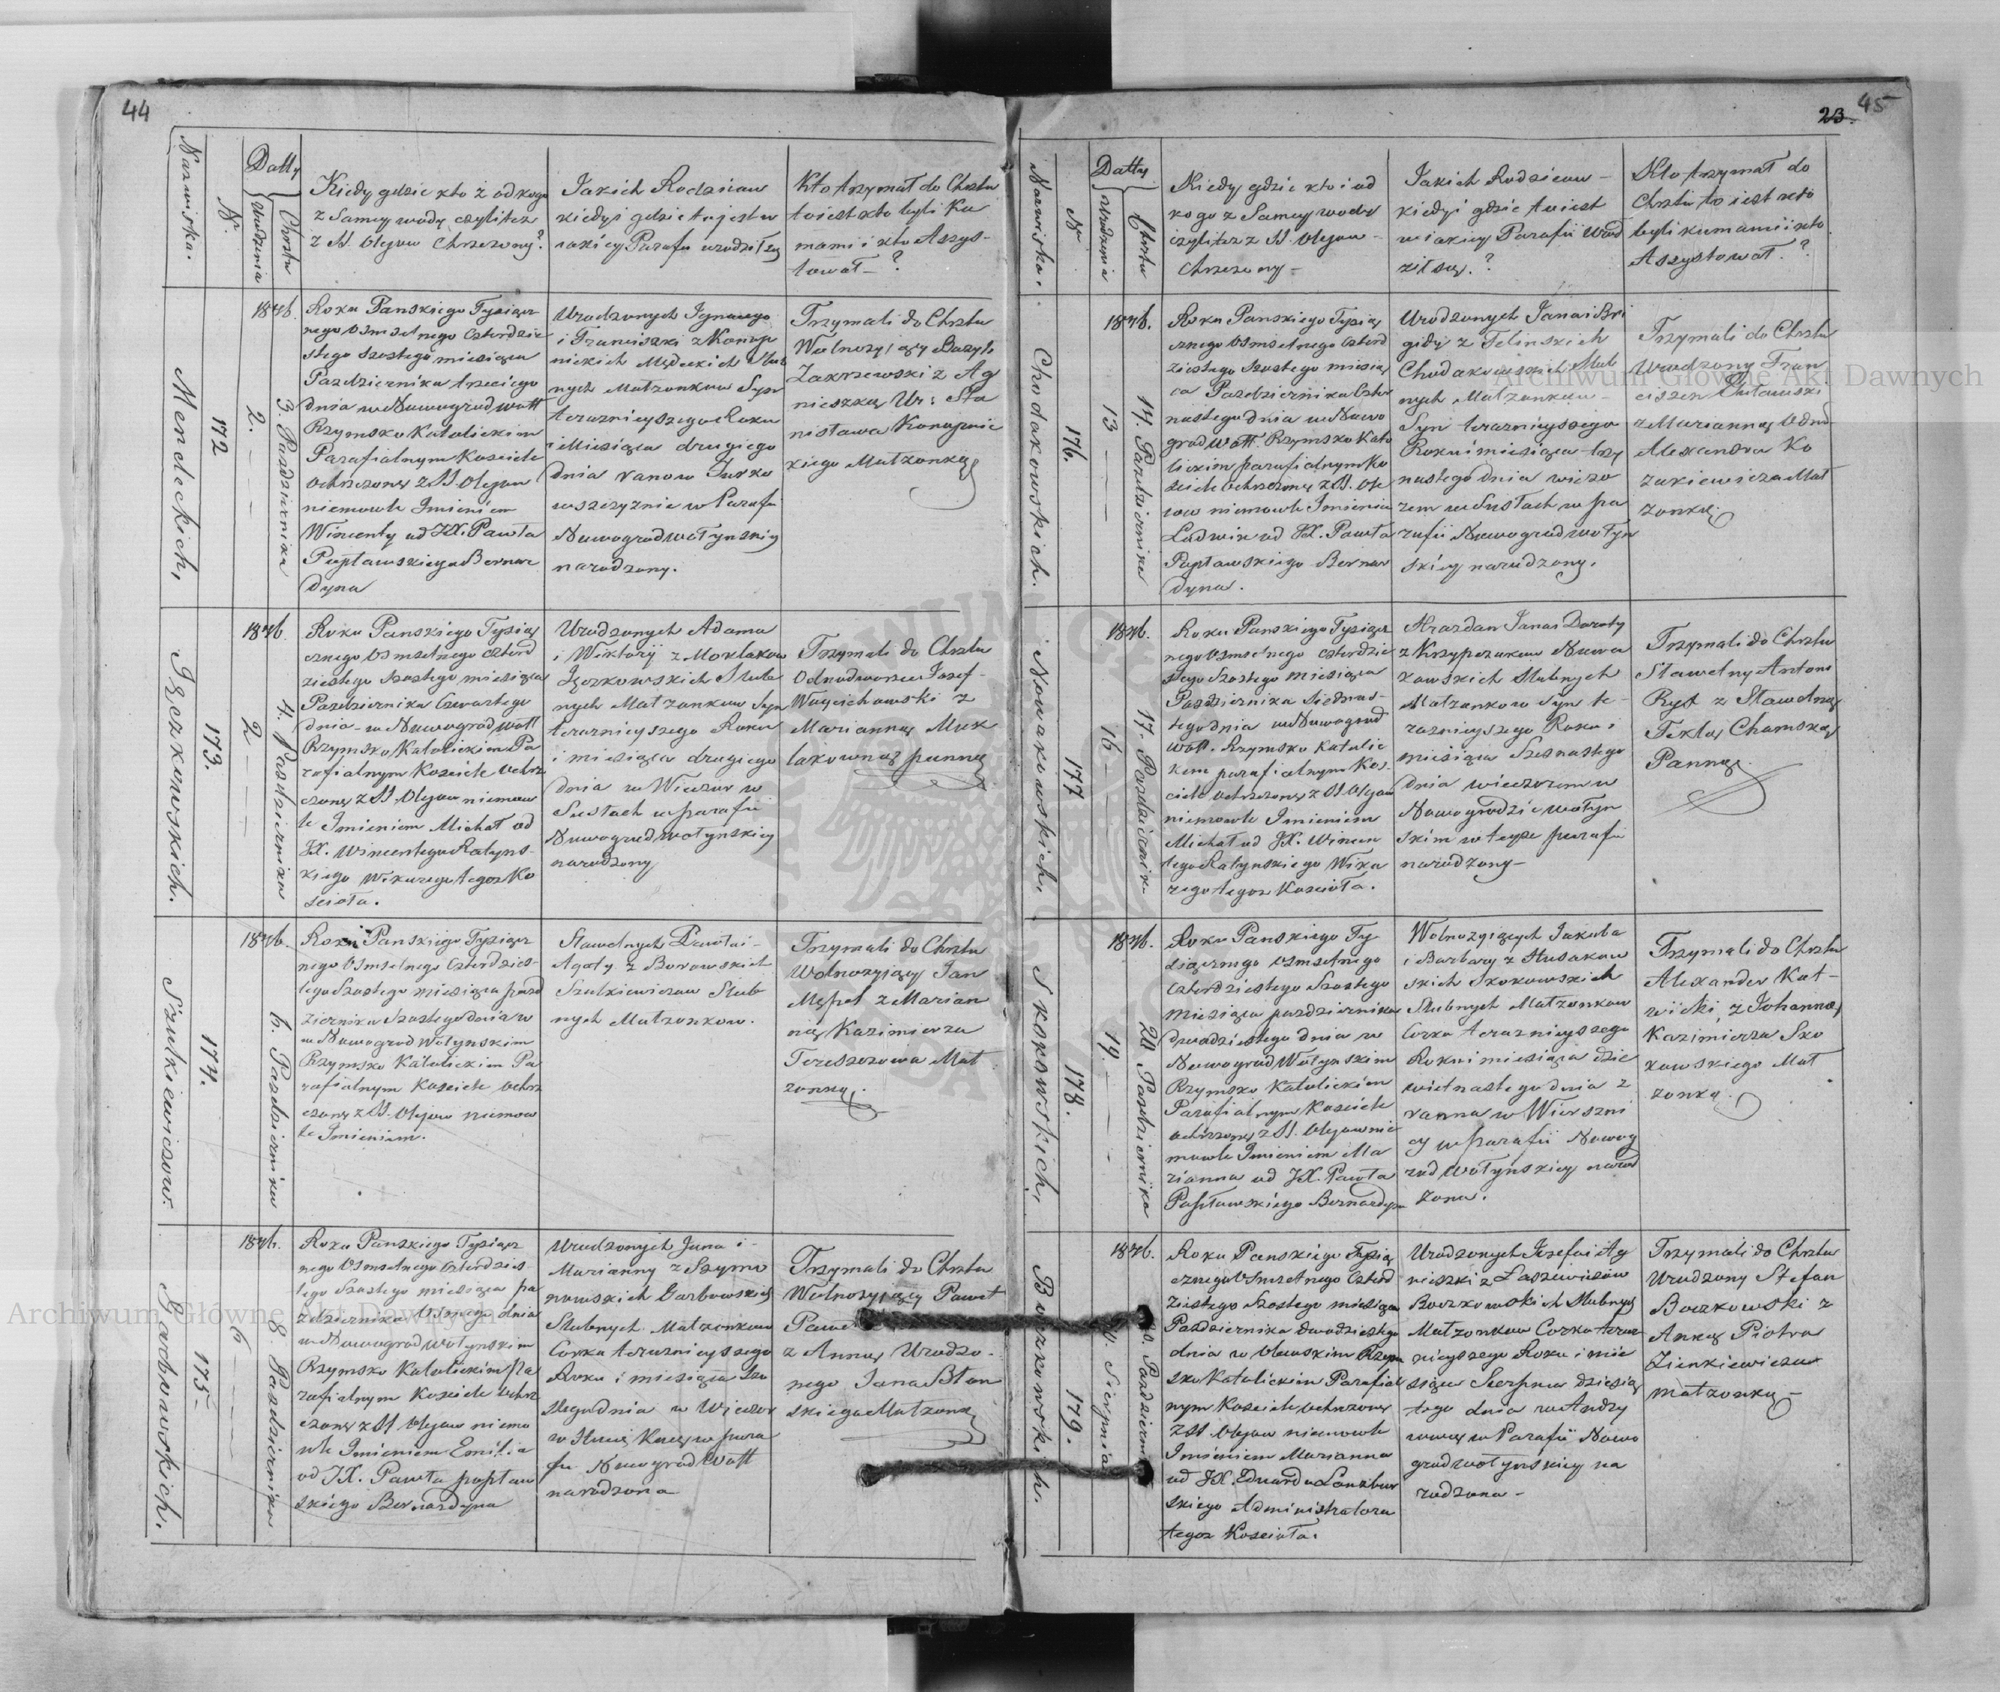 44
Nazwiska.
Nr
Datty
Urodzenia
Chrztu
Kiedy gdzie kto i od kogo
z Samey wody czyli też
z SS. Olejow Chrzczony?
Jakich Rodzicow
kiedy i gdzie to jest w
iakiey Parafii urodził się
Kto trzymał do Chrztu
to iest kto byli Ku
mami i kto Assys-
tował - ?
Mendeckich,
172
2.
3. Pazdziernika
1846.
Roku Panskiego Tysiącz
nego Osmsetnego Czterdzie
stego Szostego miesiąca
Pazdziernika trzeciego
dnia w Nowogradwołł
Rzymsko Katolickim
Parafialnym Kosciele
Ochrzczony z SS Olejow
niemowle Imieniem
Wincenty od JX. Pawła
Popławskiego Bernar
dyna
Urodzonych Ignacego
i Franciszki z Konop
nickich Mędeckich Slub
nych Małzonkow Syn
teraznieyszego Roku
i Miesiąca drugiego
dnia rano w Jurko
wszczyznie w Parafii
Nowogradwołynskiey
narodzony.
Trzymali do Chrztu
Wolnozyiący Bazyli
Zakrzewski z Ag
nieszką Ur: Sta
nisława Konopnic
kiego Małzonką
Tęczkowskich.
173.
2
4. Pazdziernika
1846.
Roku Panskiego Tysiąc
cznego Osmsetnego Czterd
ziestego Szostego miesiąca
Pazdziernika Czwartego
dnia w Nowogradwołł
Rzymsko Katolickim Pa
rafialnym Kosciele Ochrz
czony z SS. Olejow niemow
le Imieniem Michał od
JX. Wincentego Ratyns-
kiego Wikarego tegoz Ko
scioła.
Urodzonych Adama
i Wiktoryi z Moklakow
Tęczkowskich Slub
nych Małzonkow Syn
terazniejszego Roku
i miesiąca drugiego
dnia w Wieczor w
Sustach w parafii
Nowogradwołynskiey
narodzony
Trzymali do Chrztu
Odnodworzec Josef
Woyciechowski z
Marianną Muk
lakowną panną
Szulkiewiczow.
174.
6. Pazdziernika
1846.
Roku Panskiego Tysiącz
nego Osmsetnego Czterdzies-
tego Szostego miesiąca pazd
ziernika Szostego dnia w
w Nowogrod Wołynskim
Rzymsko Katolickim Pa
rafialnym Kosciele Ochrz
czony z SS. Olejow niemow
le Imieniem.
Sławetnych Pawła i
Agaty z Borowskich
Szulkiewiczow Slub
nych Małzonkow.
Trzymali do Chrztu
Wolnozyiący Jan
z Marian
ną Kazimierza
Małzonką.
Garbowskich.
175.
6
8 Pazdziernika
1846.
Roku Panskiego Tysiącz
nego Osmsetnego Czterdzies-
tego Szostego miesiąca pa
zdziernika Osmego dnia
w Nowogradwołynskim
Rzymsko Katolickim Pa
rafialnym Kosciele Ochrz
czony z SS Olejow niemo
wle Imieniem Emilia
od JX. Pawła popław
skiego Bernardyna
Urodzonych Jana i
Marianny z Szyma
nowskich Garbowskich
Slubnych Małzonkow
Corka terazniejszego
Roku i miesiąca Szo
stego dnia w Wieczor
w parafi
Nowogradwołł
narodzona
Trzymali do Chrztu
Wolnozyiący Paweł
z Anną Urodzo-
nego Jana Błon
skiego Małzonką
23. 45
Nazwiska.
Nr
Datty
Urodzenia
Chrztu
Kiedy gdzie kto i od
kogo z Samey wody
czyli tez z SS. Olejow
Chrzczony -
Jakich Rodzicow -
kiedy i gdzie to iest
w iakiey Parafii Urod
ził się.?
Kto trzymał do
Chrztu to iest kto
byli kumami i kto
Assystował.?
Chodakowskich.
176.
13
14. Pazdziernika
1846.
Roku Panskiego Tysią
cznego Osmsetnego Czterd
ziestego Szostego miesią
ca Pazdziernika Czter
nastego dnia w Nowo
gradwołł. Rzymsko Kato
lickim parafialnym Ko
sciele Ochrzczony z SS. Ole
iow niemowle Imieniem
Ludwik od JX. Pawła
Popławskiego Bernar
dyna.
Urodzonych Jana i Bri
gidy z Felinskich
Chodakowskich Slub
nych Małzonkow
Syn terazniejszego
Roku i miesiąca trzy
nastego dnia wieczo
rem w Sustach w pa
rafii Nowogradwołyn
skiey narodzony.
Trzymali do Chrztu
Urodzony Fran
ciszek
z Marianną Odno
Alexandra Ko
zakiewicza Mał
zonką
Nowakowskich,
177
16
17. Pazdziernika
1846.
Roku Panskiego Tysiącz
nego Osmsetnego Czterdzie
stego Szostego miesiąca
Pazdziernika Siedmnas-
tego dnia w Nowograd
Wołł. Rzymsko Katolic
kim parafialnym Kos-
ciele Ochrzczony z SS Olejow
niemowle Imieniem
Michał od JX. Wincen
tego Ratynskiego Wika
rego tegoz Kosciola.
Hrazdan Jana i Doroty
z Krzypczukow Nowa
kowskich Slubnych
Małzonkow Syn te-
raznieyszego Roku i
miesiąca Szesnastego
dnia wieczorem w
Nowogrodzie wołyn
skim w teyze parafii
narodzony -
Trzymali do Chrztu
Sławetny Antoni
Ryt z Sławetną
Teklą Chomską
Panną.
Skokowskich,
178.
19.
20 Pazdziernika
1846.
Roku Panskiego Ty
siącznego Osmsetnego
Czterdziestego Szostego
Miesiąca pazdziernika
dwudziestego dnia w
Nowograd Wołynskim
Rzymsko Katolickim
Parafialnym Kosciele
ochrzczony z SS. Olejow nie
mowle Imieniem Ma
rianna od JX. Pawła
Popławskiego Bernardyna
Wolnozyiących Jakuba
i Barbary z Husakow
skich Skokowskich
Slubnych Małzonkow
Corka terazniejszego
Roku i miesiąca dzie
wietnastego dnia z
ranna w Wierszni
cy w parafii Nowog
rad wołynskiey narod
zona.
Trzymali do Chrztu
Alexander Kat-
wicki, z Johanną
Kazimierza Sko
kowskiego Mał
zonką.
Boczkowskich.
179.
Sierpnia
Pazdziernika
1846.
Roku Panskiego Tysią
cznego Osmsetnego Czterd
ziestego Szostego miesiąca
Pazdziernika dwudziestego
dnia w Olewskim Rzym
sko Katolickim Parafial
nym Kosciele Ochrzczony
z SS Olejow niemowle
Imieniem Marianna
od JX. Eduarda
skiego Administratora
tegoz Kosciola.
Urodzonych Jozefa i Ag
nieszki z Łaszewiczow
Boczkowskich Slubnych
Małzonkow Corka teraz
nieyszego Roku i mie
siąca Sierpnia dziesią
tego dnia w Andry
w Parafii Nowo
gradwołynskiey na
rodzona -
Trzymali do Chrztu
Urodzony Stefan
Boczkowski z
Anną Piotra
Zienkiewicza
małzonką -
Archiwum Główne Akt Dawnych
Archiwum Główne Akt Dawnych